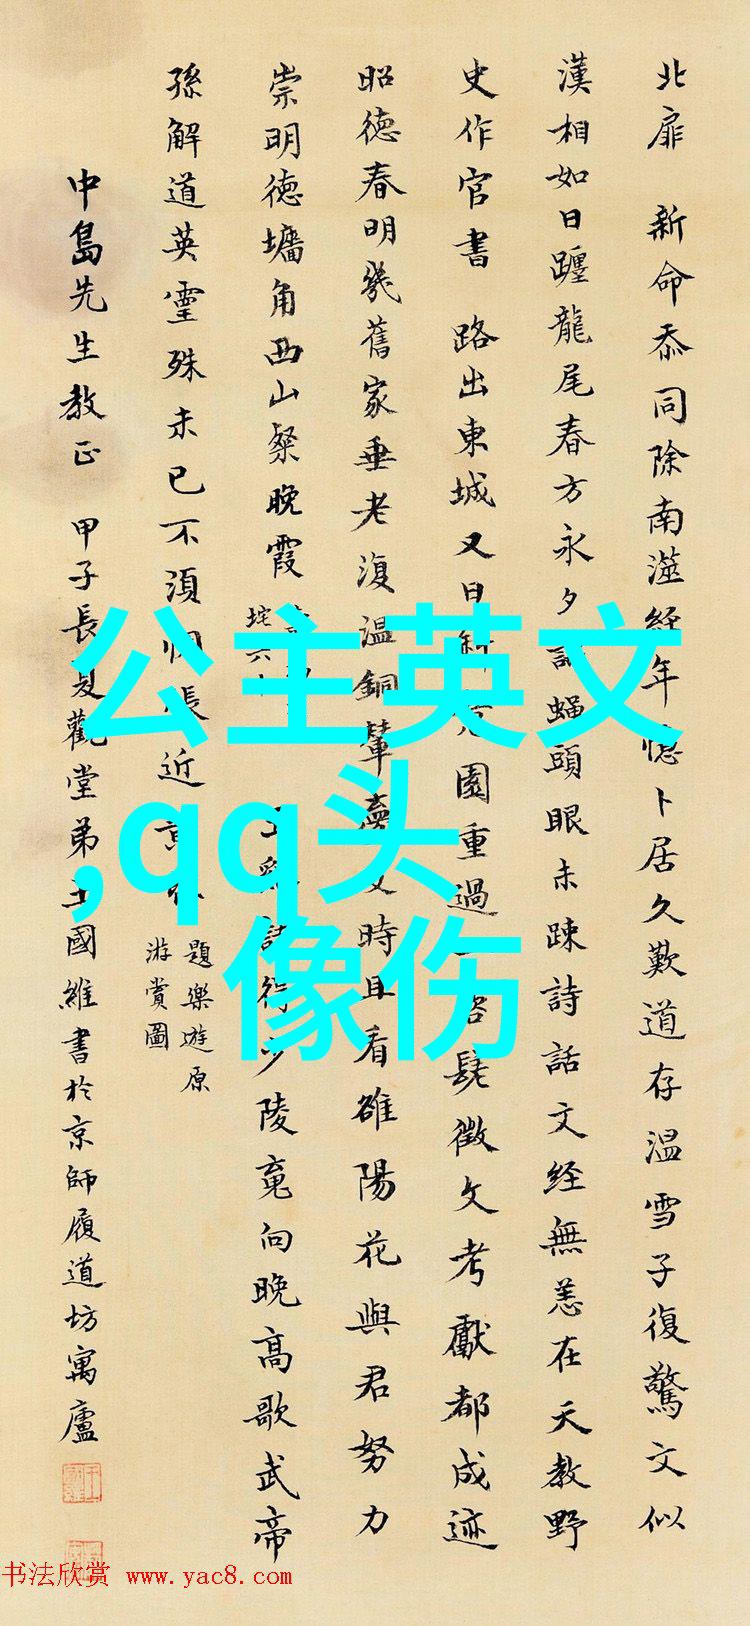 北扉 新命忝同除南滋経年憶卜居久歎道存温雪子復驚文似
漢相如日躔龍尾春方永夕蝇頭眼未踈詩話文経無恙在天教野
史作官書 路出東城又日斜園重過一髦徵文考獻都成迹
昭德春明幾舊家垂老復温銅輦時且看雒陽花與君努力
崇明德墉角西山粲晚霞
行少陵竟向晚高歌武帝
孫解道英靈殊未已不須悵近
題樂遊原
游賞圖
中島先生教正 甲子長夏觀堂弟王國維書於京師履道坊寓廬
公主英文
,qq头
像伤
书法欣赏 www.yac8.com